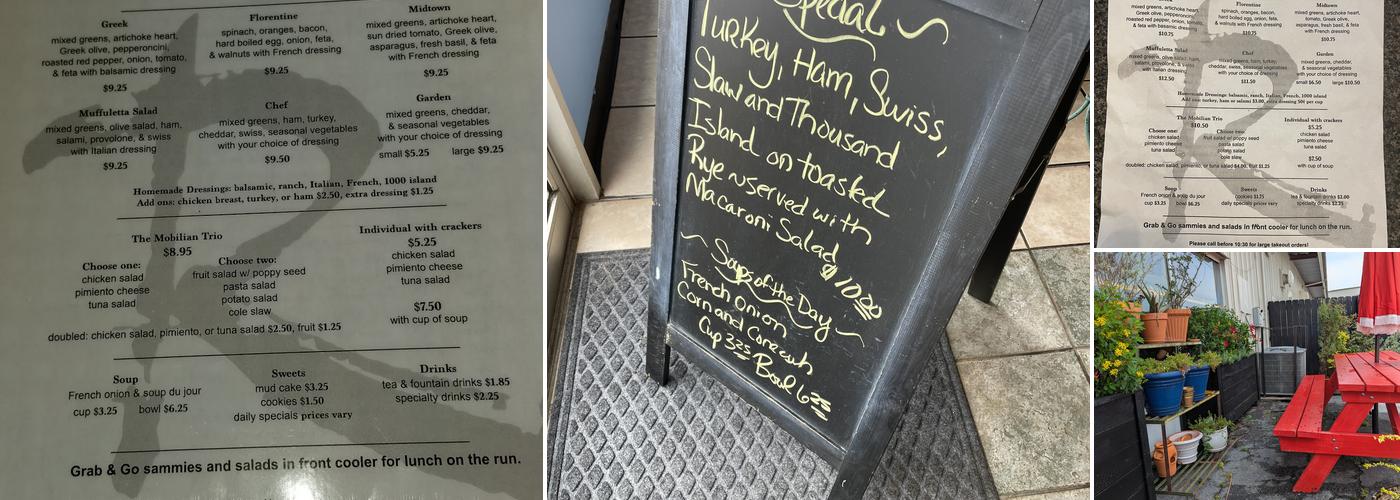 Greek
mixed greens, artichoke heart,
Greek olive, pepperoncini,
roasted red pepper, onion, tomato,
& feta with balsamic dressing
$9.25
Florentine
spinach, oranges, bacon,
hard boiled egg, onion, feta,
& walnuts with French dressing
$9.25
Midtown
mixed greens, artichoke heart,
sun dried tomato, Greek olive,
asparagus, fresh basil, & feta
with French dressing
$9.25
Muffuletta Salad
mixed greens, olive salad, ham,
salami, provolone, & swiss
with Italian dressing
$9.25
Chef
mixed greens, ham, turkey,
cheddar, swiss, seasonal vegetables
with your choice of dressing
$9.50
Garden
mixed greens, cheddar,
& seasonal vegetables
with your choice of dressing
small $5.25 large $9.25
Homemade Dressings: balsamic, ranch, Italian, French, 1000 island
Add ons: chicken breast, turkey, or ham $2.50, extra dressing $1.25
The Mobilian Trio
$8.95
Choose one:
chicken salad
pimiento cheese
tuna salad
Choose two:
fruit salad w/ poppy seed
pasta salad
potato salad
cole slaw
doubled: chicken salad, pimiento, or tuna salad $2.50, fruit $1.25
Individual with crackers
$5.25
chicken salad
pimiento cheese
tuna salad
$7.50
with cup of soup
Soup
French onion & soup du jour
cup $3.25 bowl $6.25
Sweets
mud cake $3.25
cookies $1.50
daily specials prices vary
Drinks
tea & fountain drinks $1.85
specialty drinks $2.25
Grab & Go sammies and salads in front cooler for lunch on the run.
Special
Turkey, Ham, Swiss,
Slaw and Thousand
Island on toasted
Rye served with
Macaroni Salad
$10.00
Soups of the Day
French Onion
Corn and Conecuh
Cup 3.25 Bowl 6.25
Greek
mixed greens, artichoke heart,
Greek olive, pepperoncini,
roasted red pepper, onion, tomato,
& feta with balsamic dressing
$10.75
Florentine
spinach, oranges, bacon,
hard boiled egg, onion, feta,
& walnuts with French dressing
$10.75
Midtown
mixed greens, artichoke heart,
tomato, Greek olive,
asparagus, fresh basil, & feta
with French dressing
$10.75
Muffuletta Salad
mixed greens, olive salad, ham,
salami, provolone, & swiss
with Italian dressing
$12.50
Chef
mixed greens, ham, turkey,
cheddar, swiss, seasonal vegetables
with your choice of dressing
$11.50
Garden
mixed greens, cheddar,
& seasonal vegetables
with your choice of dressing
small $6.50 large $10.50
Homemade Dressings: balsamic, ranch, Italian, French, 1000 island
Add ons: turkey, ham or salami $3.00, extra dressing 50¢ per cup
The Mobilian Trio
$10.50
Choose one:
chicken salad
pimiento cheese
tuna salad
Choose two:
fruit salad w/ poppy seed
pasta salad
potato salad
cole slaw
doubled: chicken salad, pimiento, or tuna salad $4.00, fruit $1.25
Individual with crackers
$5.25
chicken salad
pimiento cheese
tuna salad
$7.50
with cup of soup
Soup
French onion & soup du jour
cup $3.25 bowl $6.25
Sweets
cookies $1.75
daily specials prices vary
Drinks
tea & fountain drinks $2.00
specialty drinks $2.25
Grab & Go sammies and salads in front cooler for lunch on the run.
Please call before 10:30 for large takeout orders!